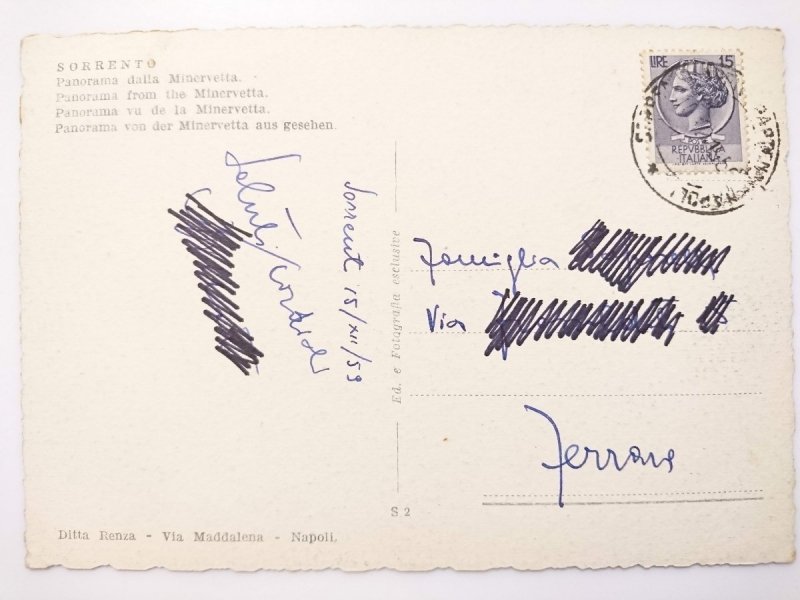 SORRENTO
Panorama dalla Minervetta.
Panorama from the Minervetta.
Panorama vu de la Minervetta.
Panorama von der Minervetta aus gesehen.
LIRE 15
REPVBBLICA
ITALIANA
NAPOLI
Saluti cordiali
Sorrent 15/XII/59
Ed. e Fotografia esclusive
Famiglia
Via
Ferrara
S 2
Ditta Renza - Via Maddalena - Napoli.